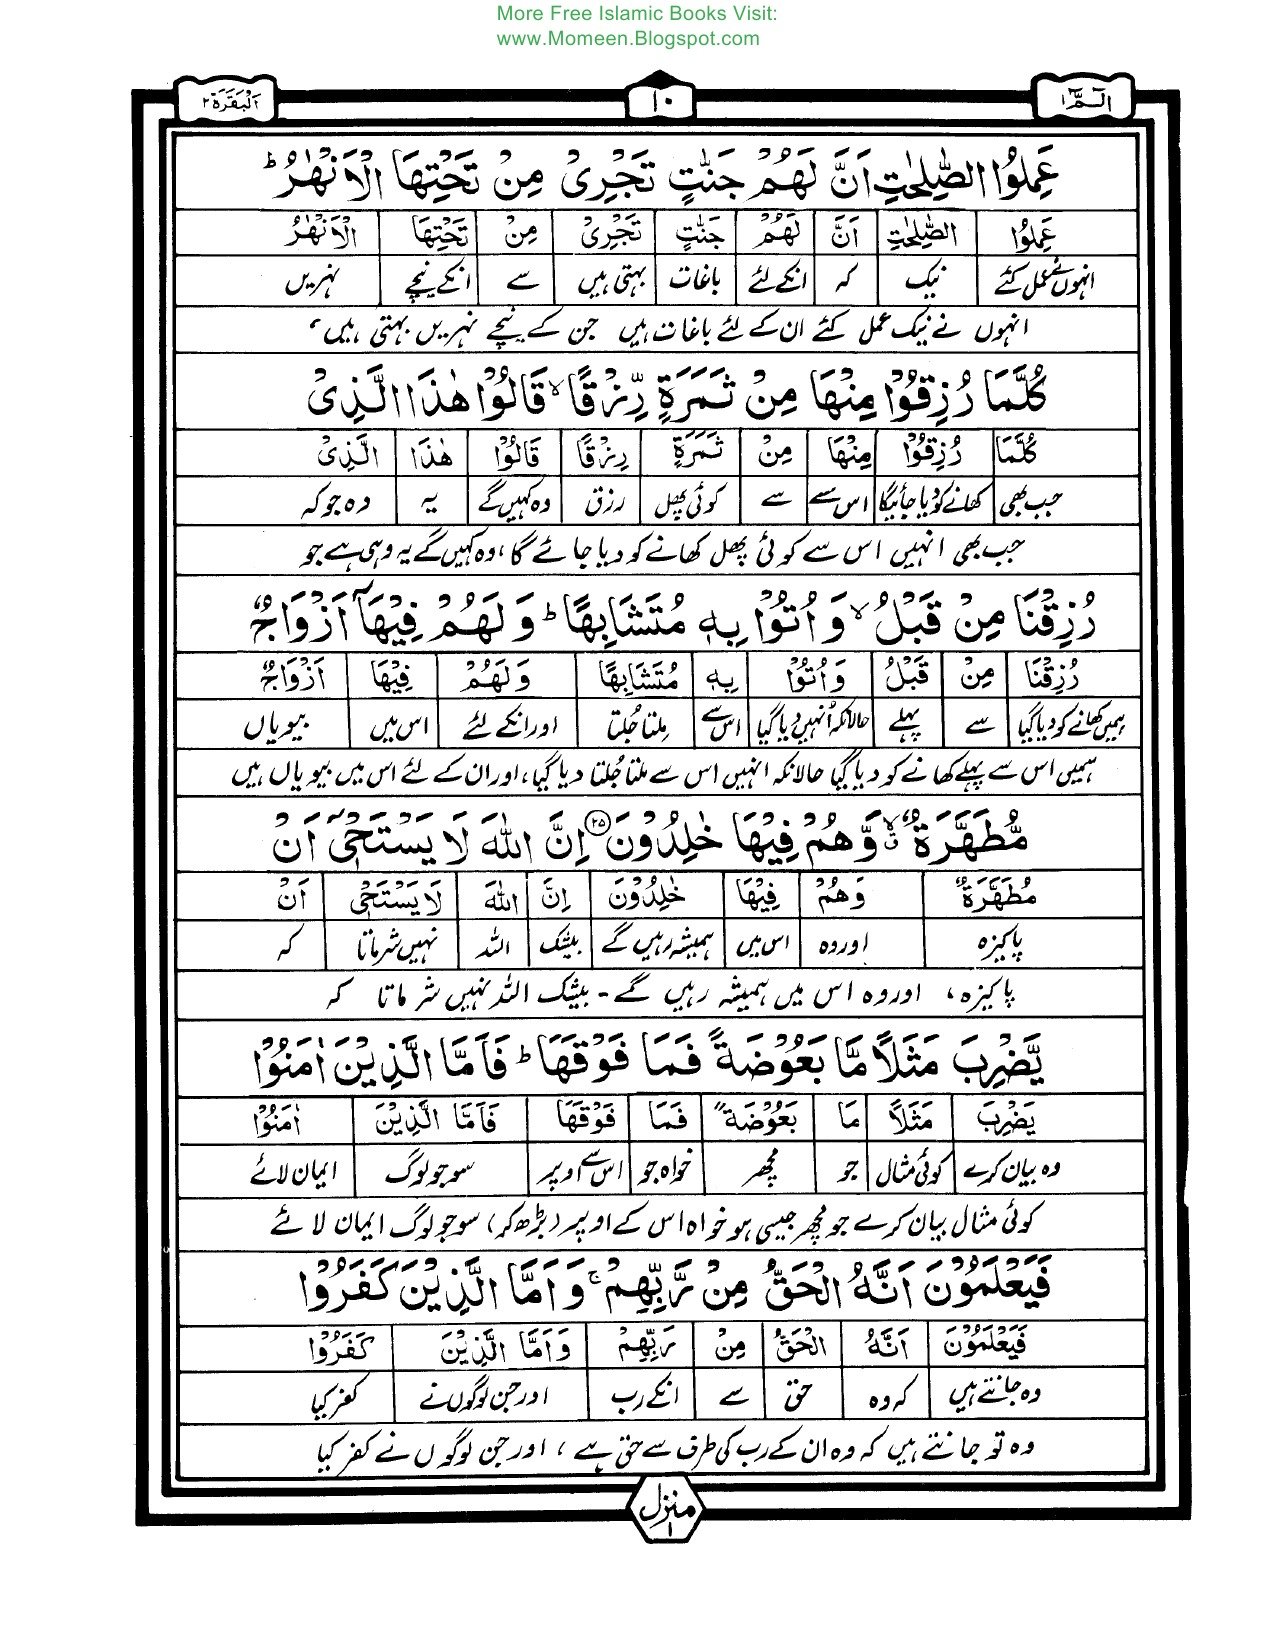 More Free Islamic Books Visit:
www.Momeen.Blogspot.com
الٓـمّٓ ١ ١٠ اَلْبَقَرَة ٢
عَمِلُوا الصّٰلِحٰتِ اَنَّ لَهُمْ جَنّٰتٍ تَجْرِیْ مِنْ تَحْتِهَا الْاَنْهٰرُ ؕ
عَمِلُوا الصّٰلِحٰتِ اَنَّ لَهُمْ جَنّٰتٍ تَجْرِیْ مِنْ تَحْتِهَا الْاَنْهٰرُ
انہوں نے عمل کئے نیک کہ انکے لئے باغات بہتی ہیں سے انکے نیچے نہریں
انہوں نے نیک عمل کئے ان کے لئے باغات ہیں جن کے نیچے نہریں بہتی ہیں،
كُلَّمَا رُزِقُوْا مِنْهَا مِنْ ثَمَرَةٍ رِّزْقًا ۙ قَالُوْا هٰذَا الَّذِیْ
كُلَّمَا رُزِقُوْا مِنْهَا مِنْ ثَمَرَةٍ رِزْقًا قَالُوْا هٰذَا الَّذِیْ
جب بھی کھانے کو دیا جائیگا اس سے سے کوئی پھل رزق وہ کہیں گے یہ وہ جو کہ
جب بھی انہیں اس سے کوئی پھل کھانے کو دیا جائے گا، وہ کہیں گے یہ وہی ہے جو
رُزِقْنَا مِنْ قَبْلُ ۙ وَاُتُوْا بِهٖ مُتَشَابِهًا ؕ وَلَهُمْ فِيْهَاۤ اَزْوَاجٌ
رُزِقْنَا مِنْ قَبْلُ وَاُتُوْا بِهٖ مُتَشَابِهًا وَلَهُمْ فِيْهَا اَزْوَاجٌ
ہمیں کھانے کو دیا گیا سے پہلے حالانکہ اُنہیں دیا گیا اس سے مِلتا جُلتا اور انکے لئے اس میں بیویاں
ہمیں اس سے پہلے کھانے کو دیا گیا حالانکہ انہیں اس سے ملتا جُلتا دیا گیا، اور ان کے لئے اس میں بیویاں ہیں
مُّطَهَّرَةٌ ۙ وَّهُمْ فِيْهَا خٰلِدُوْنَ ۲۵ اِنَّ اللّٰهَ لَا يَسْتَحْیٖۤ اَنْ
مُطَهَّرَةٌ وَهُمْ فِيْهَا خٰلِدُوْنَ اِنَّ اللّٰهَ لَا يَسْتَحْیٖ اَنْ
پاکیزہ اور وہ اس میں ہمیشہ رہیں گے بیشک اللہ نہیں شرماتا کہ
پاکیزہ، اور وہ اس میں ہمیشہ رہیں گے - بیشک اللہ نہیں شرماتا کہ
يَّضْرِبَ مَثَلًا مَّا بَعُوْضَةً فَمَا فَوْقَهَا ؕ فَاَمَّا الَّذِيْنَ اٰمَنُوْا
يَضْرِبَ مَثَلًا مَا بَعُوْضَةً فَمَا فَوْقَهَا فَاَمَّا الَّذِيْنَ اٰمَنُوْا
وہ بیان کرے کوئی مثال جو مچھر خواہ جو اس سے اوپر سو جو لوگ ایمان لائے
کوئی مثال بیان کرے جو مچھر جیسی ہو خواہ اس کے اوپر (بڑھ کر) سو جو لوگ ایمان لائے
فَيَعْلَمُوْنَ اَنَّهُ الْحَقُّ مِنْ رَّبِّهِمْ ۚ وَاَمَّا الَّذِيْنَ كَفَرُوْا
فَيَعْلَمُوْنَ اَنَّهُ الْحَقُّ مِنْ رَبِّهِمْ وَاَمَّا الَّذِيْنَ كَفَرُوْا
وہ جانتے ہیں کہ وہ حق سے انکے رب اور جن لوگوں نے کفر کیا
وہ تو جانتے ہیں کہ وہ ان کے رب کی طرف سے حق ہے، اور جن لوگوں نے کفر کیا
منزل ۱